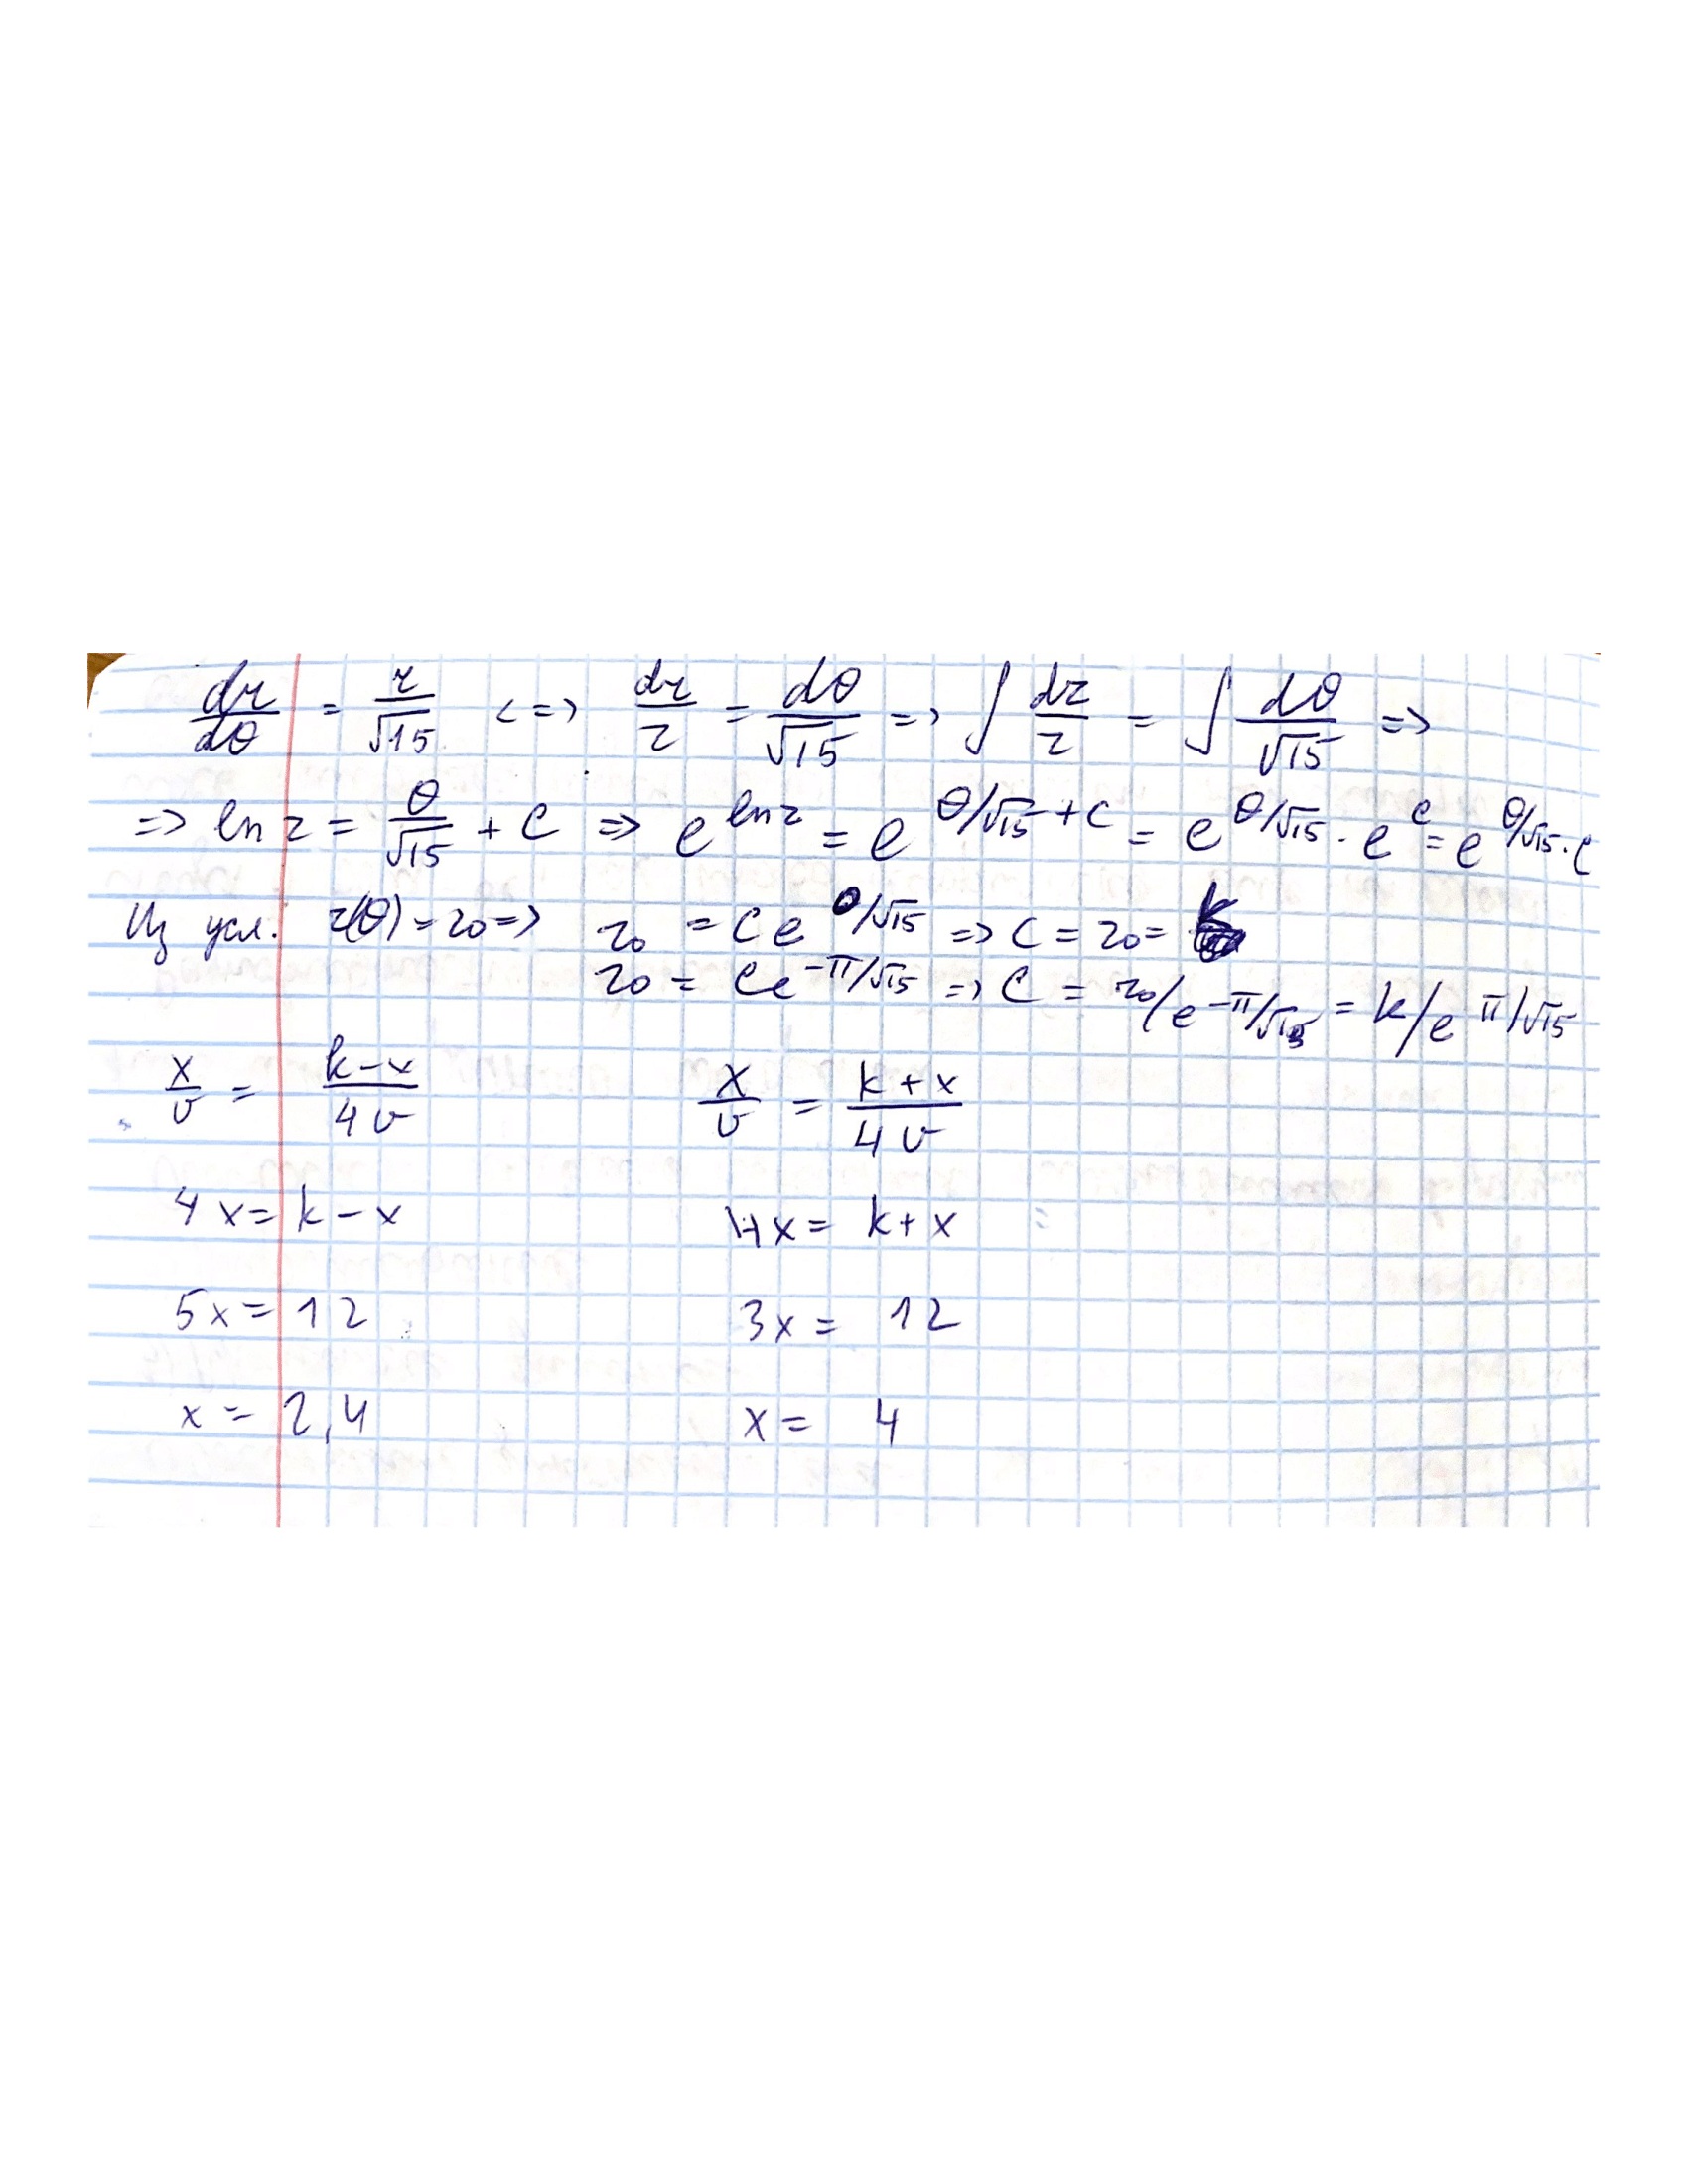 dr/dθ = r/√15 <=> dr/r = dθ/√15 => ∫ dr/r = ∫ dθ/√15 =>
=> ln r = θ/√15 + C => e^(ln r) = e^(θ/√15 + C) = e^(θ/√15) · e^C = e^(θ/√15) · C
Из усл. r(θ) = r0 => r0 = C e^(0/√15) => C = r0 =
r0 = C e^(-π/√15) => C = r0/e^(-π/√15) = k/e^(π/√15)
x/v = (k-x)/4v x/v = (k+x)/4v
4x = k-x 4x = k+x
5x = 12 3x = 12
x = 2,4 x = 4